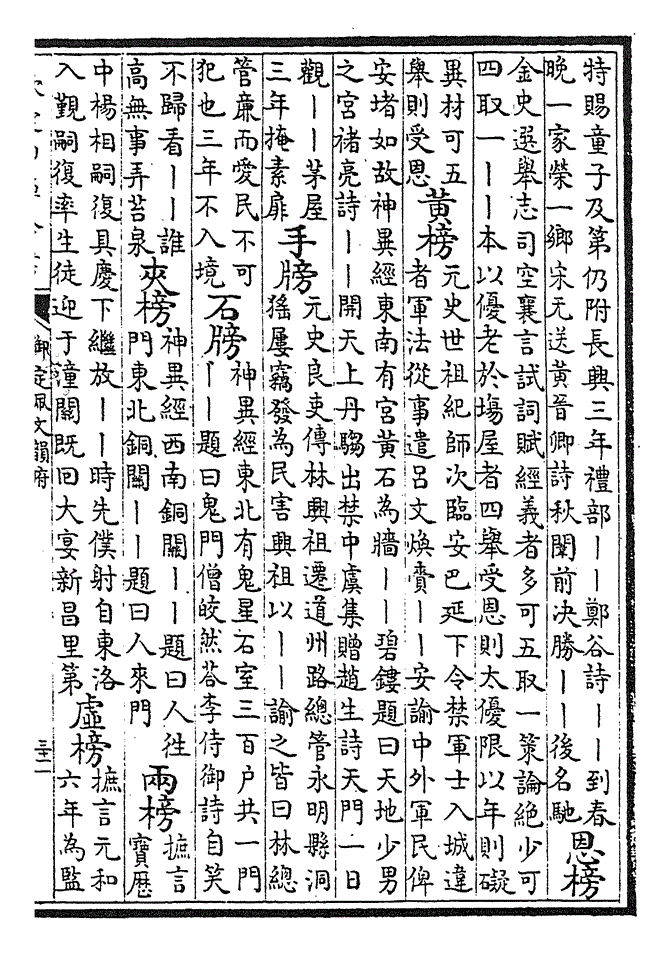 特賜童子及第仍附長興三年禮部||鄭谷詩||到春
晚一家榮一鄉宋无送黃晉卿詩秋闈前決勝||後名馳
恩榜
金史選舉志司空襄言試詞賦經義者多可五取一策論絕少可
四取一||本以優老於場屋者四舉受恩則太優限以年則礙
異材可五
舉則受恩
黃榜
元史世祖紀師次臨安巴延下令禁軍士入城違
者軍法從事遣呂文煥賷||安諭中外軍民俾
安堵如故神異經東南有宮黃石為牆||碧鏤題曰天地少男
之宮褚亮詩||開天上丹騶出禁中虞集贈趙生詩天門一日
觀||茅屋
三年掩素扉
手牓
元史良吏傳林興祖遷道州路總管永明縣洞
猺屢竊發為民害興祖以||諭之皆曰林總
管亷而愛民不可
犯也三年不入境
石牓
神異經東北有鬼星石室三百户共一門
||題曰鬼門僧皎然荅李侍御詩自笑
不歸看||誰
高無事弄苔泉
夾榜
神異經西南銅闕||題曰人往
門東北銅闕||題曰人來門
兩榜
摭言
寶歷
中楊相嗣復具慶下繼放||時先僕射自東洛
入覲嗣復率生徒迎于潼關既回大宴新昌里第
虛榜
摭言元和
六年為監
御定佩文韻府
三十二